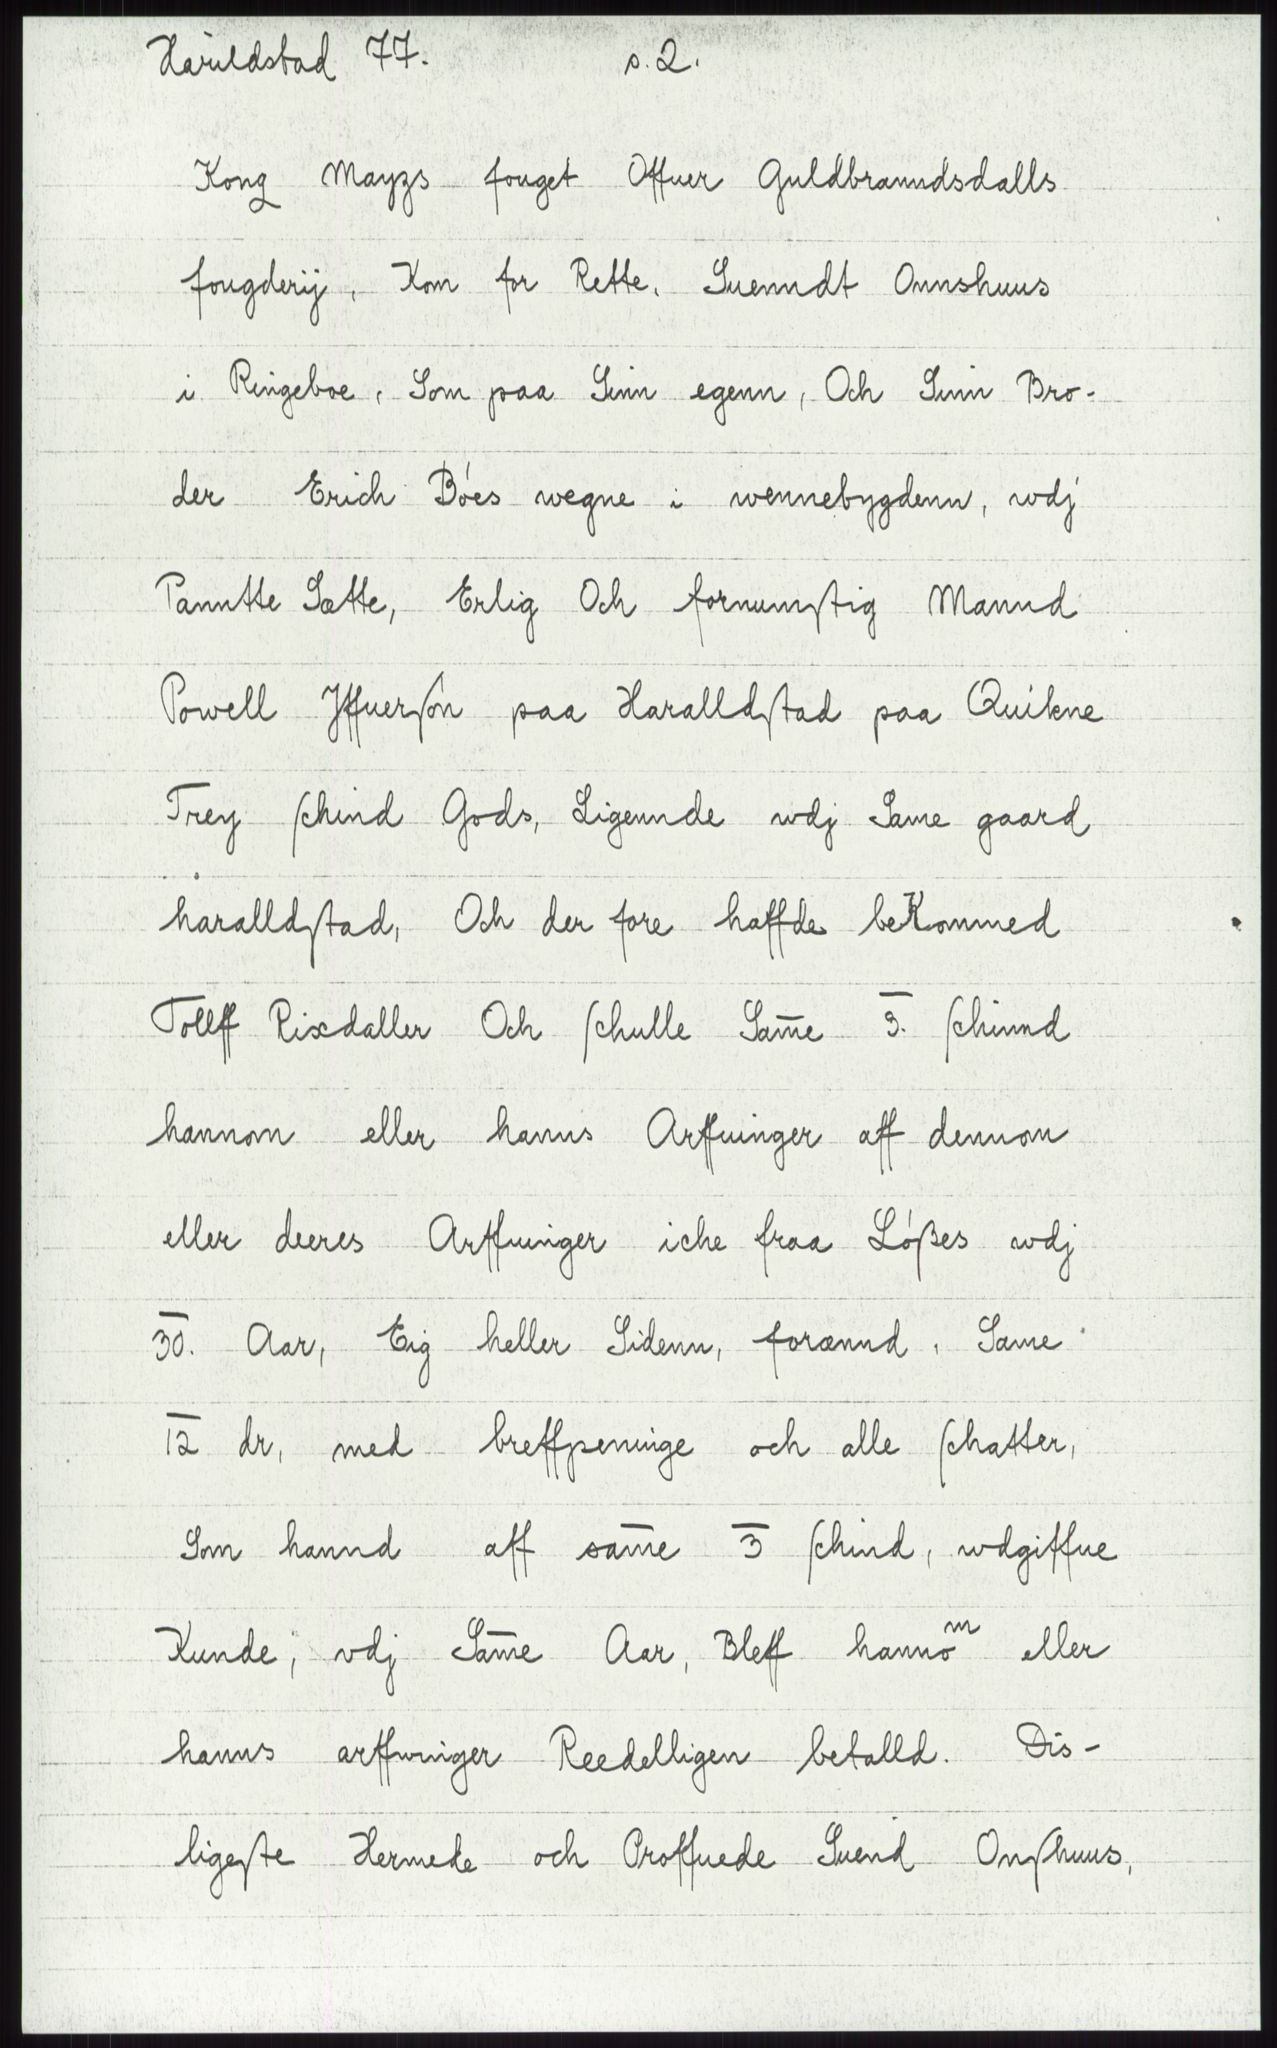 Haruldstad 77. s. 2.
Kong Mayzs fouget Offuer Guldbranndsdalls
fougderij, Kom for Rette, Suenndt Onnshuus
i Ringeboe, Som paa Sinn egenn, Och Sinn Bro-
der Erich Bóes wegne i wennebygdenn, wdj
Panntte Sætte, Erlig Och fornumstig Mannd
Powell Iffuersón paa Haralldstad paa Quikne
Trey schind Gods, Ligennde wdj Same gaard
haralldstad, Och der fore haffde beKommed
Tollff Rixdaller Och schulle Sam̄e 3. schinnd
hannom eller hanns Arffuinger aff dennom
eller deeres Arffuinger iche fraa Lóßes wdj
30. Aar, Eig heller Sidenn, forænnd, Same
12 dr, med breffpeninge och alle schatter,
Som hannd aff sam̄e 3 schind, wdgiffue
Kunde, vdj Sam̄e Aar, Bleff hannom eller
hanns arffwinger Reedelligen betalld. Dis-
ligeste Hermede och Proffuede Suend Onshuus,